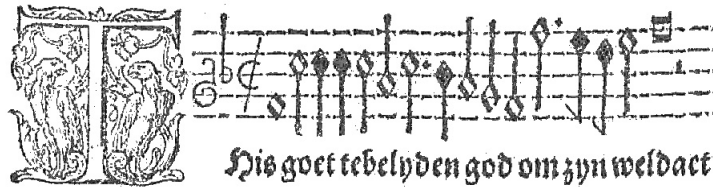 T His goet tebelyden god om zyn weldaet